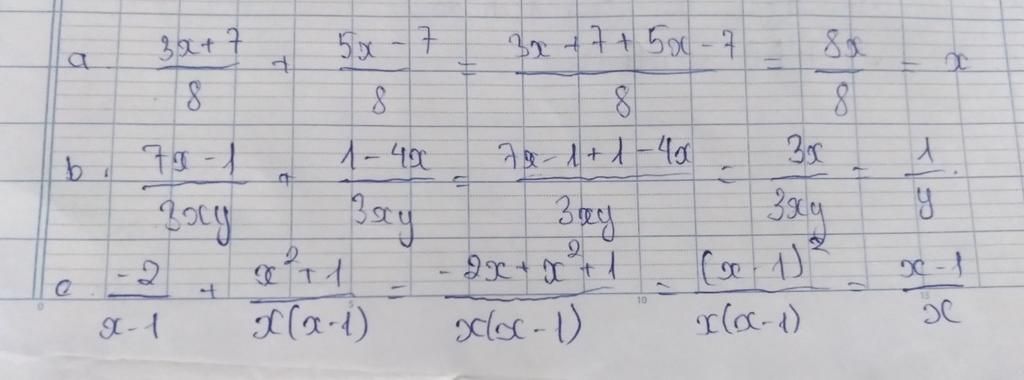 a. (3x+7)/8 + (5x-7)/8 = (3x+7+5x-7)/8 = 8x/8 = x
b. (7x-1)/3xy + (1-4x)/3xy = (7x-1+1-4x)/3xy = 3x/3xy = 1/y.
c. -2/(x-1) + (x²+1)/x(x-1) = (-2x+x²+1)/x(x-1) = (x-1)²/x(x-1) = (x-1)/x
0 5 10 15